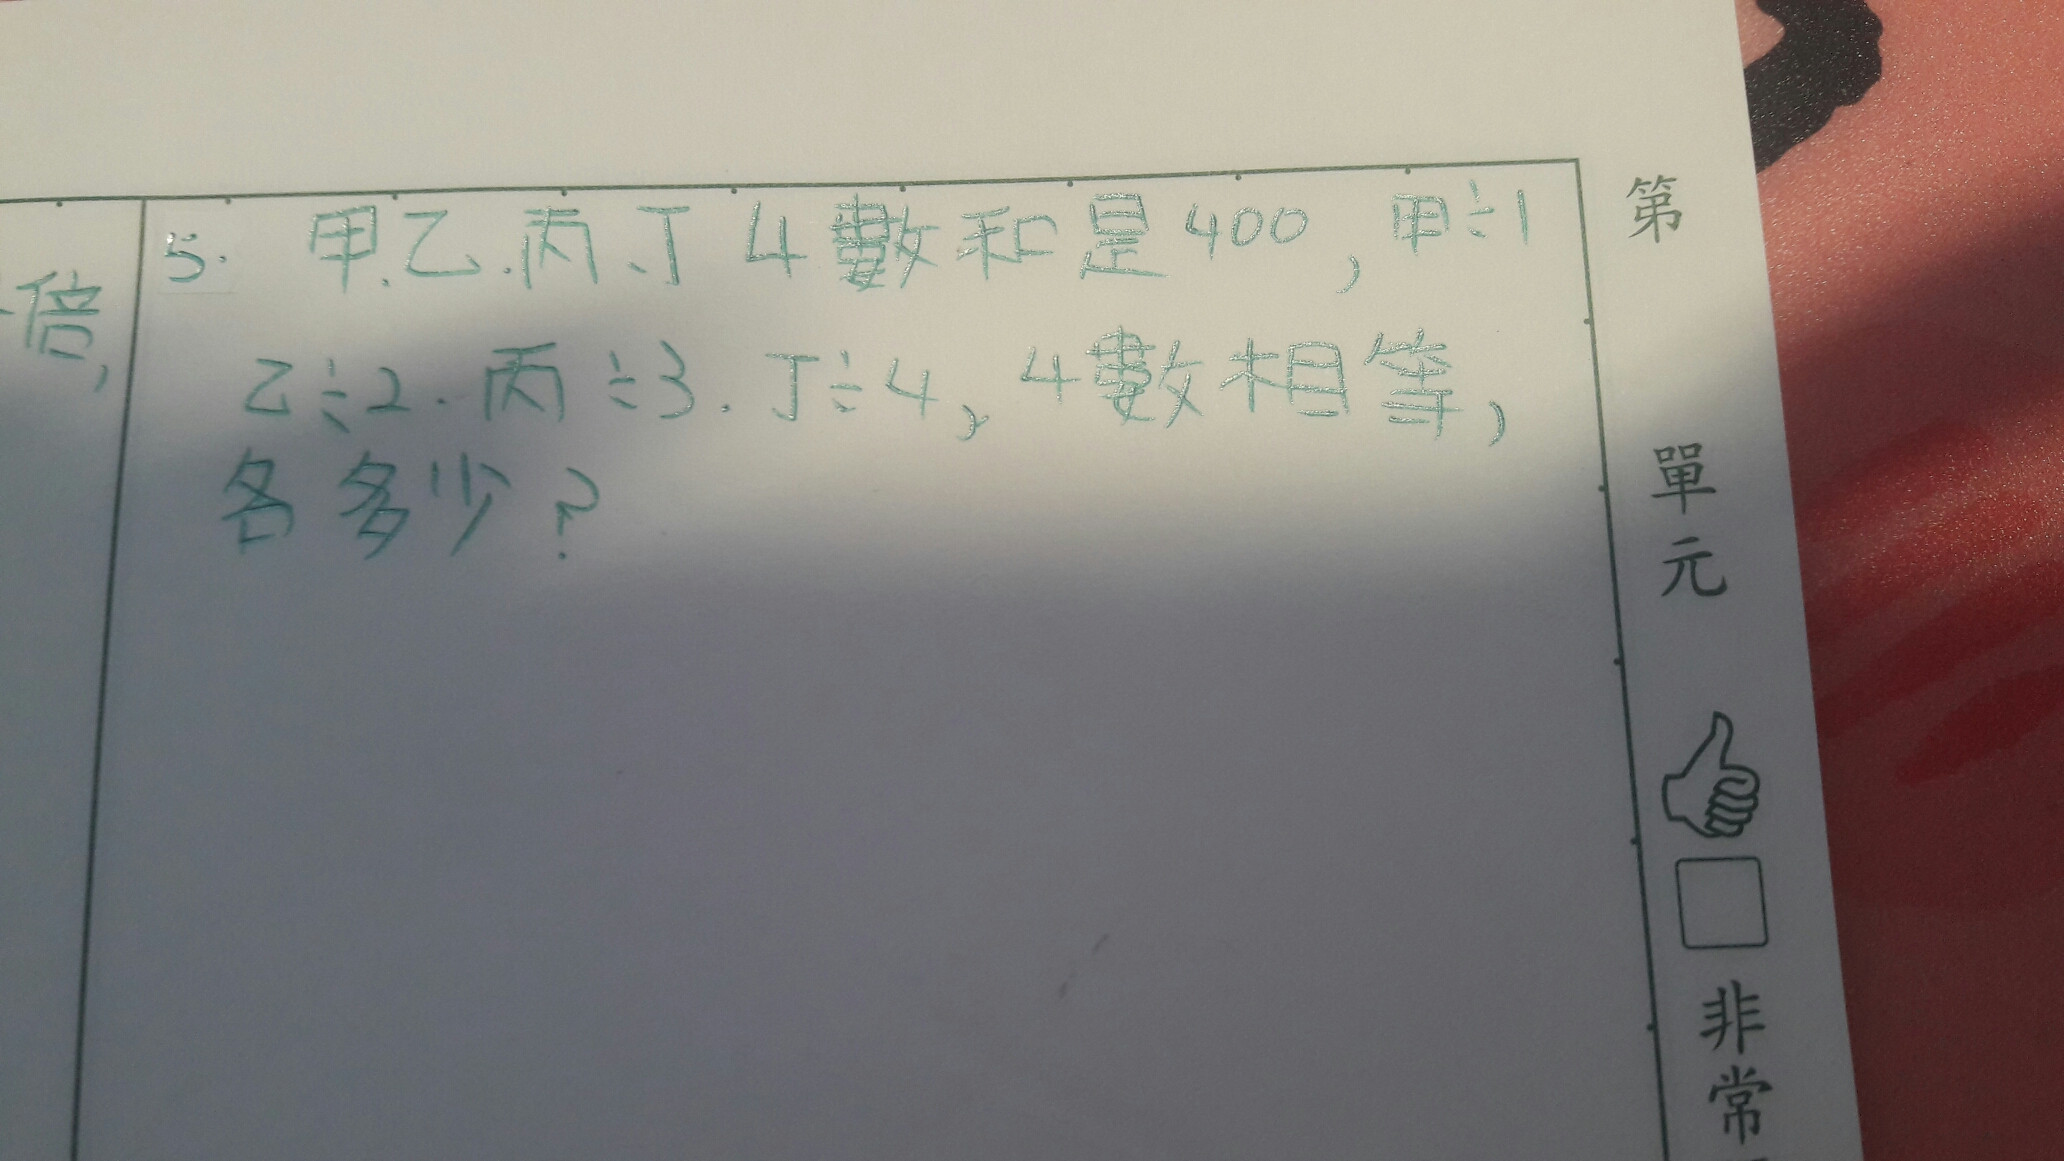 倍,
5. 甲、乙、丙、丁4數和是400,甲÷1
乙÷2、丙÷3、丁÷4,4數相等,
各多少?
第
單
元
非
常